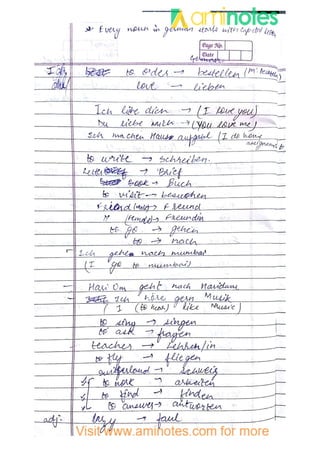 aminotes
* Every noun in german starts with capital letter
Page No.
Date
German
Ich to order → bestellen
love → lieben
Ich liebe dich → (I love you)
Du liebe mich → (You love me)
Ich machen Haus aufgabe (I do home
assignments
to write → Schreiben.
Letter → Brief
Book → Buch
to visit → besuchen
Friend (male) → Freund
" (female) → Freundin
to go → gehen
to → nach
Ich gehe nach mumbai
(I go to mumbai)
Hari Om geht nach Haridwar.
Ich höre gern Musik
( I (to hear) like Music )
to sing → singen
to ask → fragen
teacher → Lehrer/in
to fly → fliegen
switzerland → Schweiz
to work → arbeiten
to find → finden
to answer → antworten
adj. lazy → faul
Visit www.aminotes.com for more